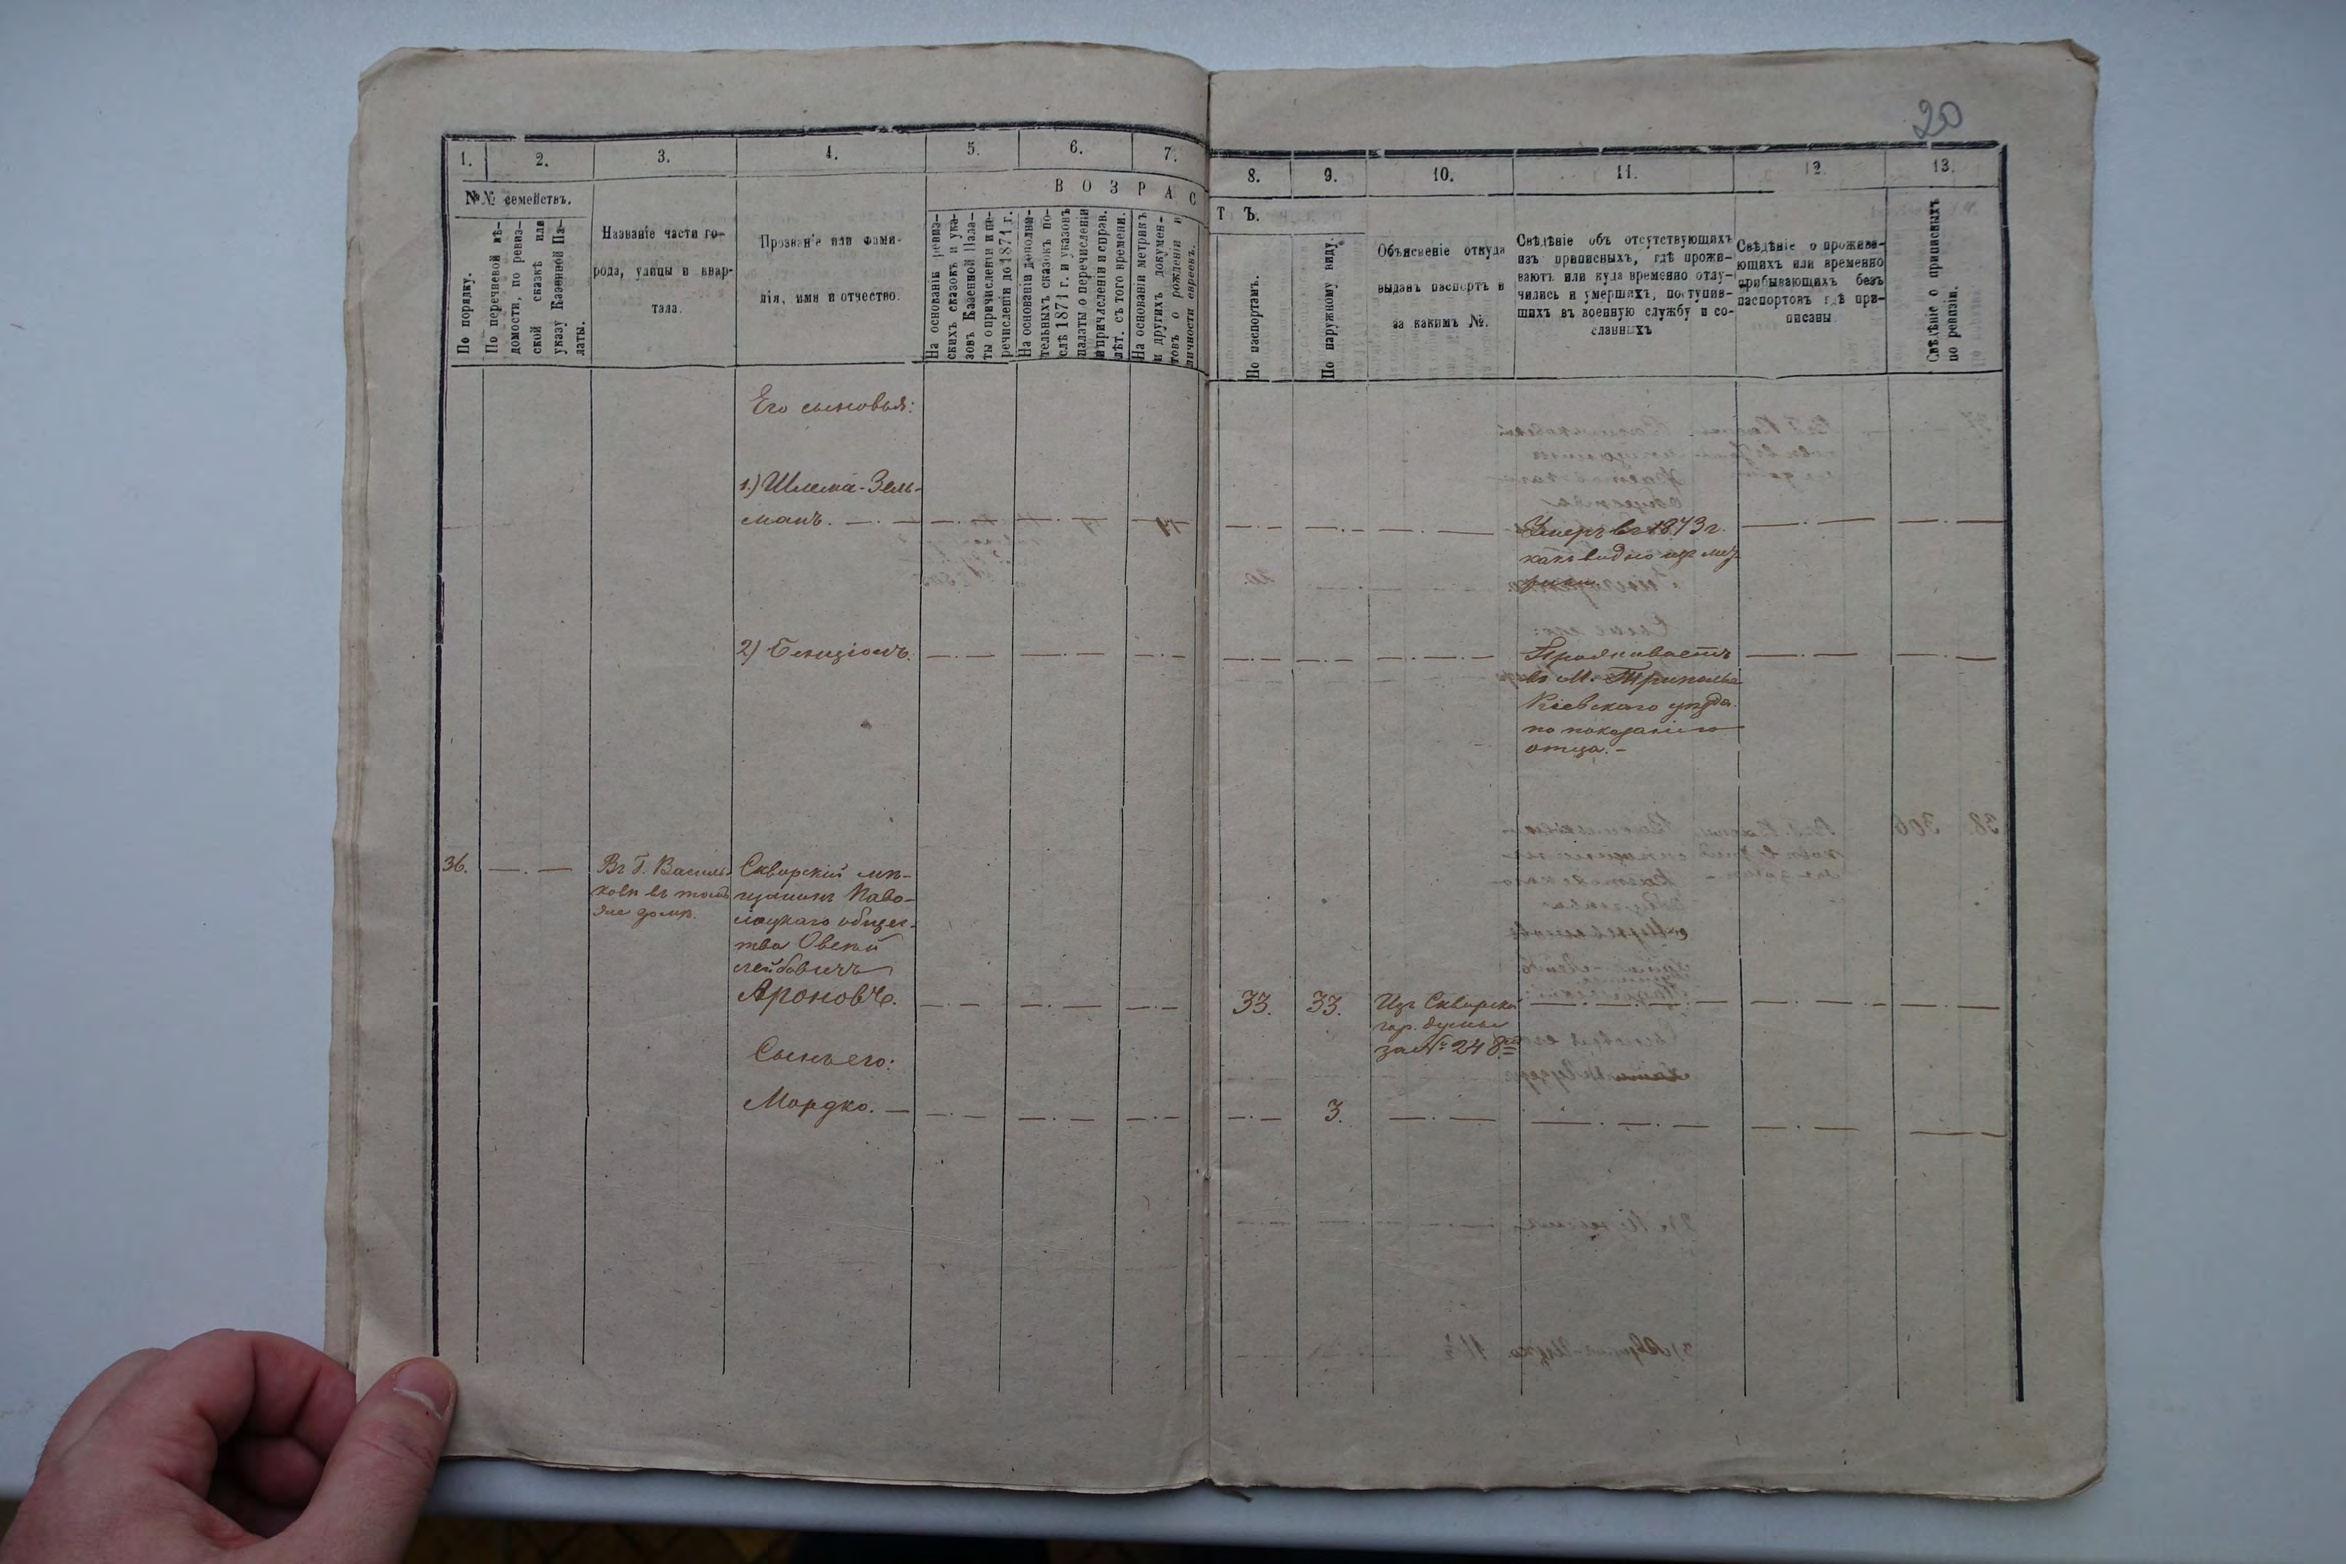 20
1. 2. 3. 4. 5. 6. 7. 8. 9. 10. 11. 12. 13.
№№ семействъ.
По порядку.
По перечневой вѣ-
домости, по ревиз-
ской сказкѣ или
указу Казенной Па-
латы.
Названіе части го-
рода, улицы и квар-
тала.
Прозваніе или фами-
лія, имя и отчество.
ВОЗРАС
ТЪ.
На основаніи ревиз-
скихъ сказокъ и ука-
зовъ Казенной Пала-
ты о причисленіи и пе-
речисленіи до 1871 г.
На основаніи дополни-
тельныхъ сказокъ по-
слѣ 1871 г. и указовъ
палаты о перечисленіи
и причисленіи и справ.
лѣт. съ того времени.
На основаніи метрикъ
и другихъ докумен-
товъ о рожденіи и
личности евреевъ.
По паспортамъ.
По наружному виду.
Объясненіе откуда
выданъ паспортъ и
за какимъ №.
Свѣдѣніе объ отсутствующихъ
изъ приписныхъ, гдѣ прожи-
ваютъ или куда временно отлу-
чились и умершихъ, поступив-
шихъ въ военную службу и со-
сланныхъ
Свѣдѣніе о прожива-
ющихъ или временно
прибывающихъ безъ
паспортовъ гдѣ при-
писаны
Свѣдѣніе о приписныхъ
по ревизіи.
Его сыновья:
1.) Шлема-Зель-
манъ.
Умеръ въ 1873 г.
какъ видно изъ мет-
рики.
2) Бенціонъ.
Проживаетъ
въ М. Триполье
Кіевскаго уѣзда.
по показанію
отца.
36.
Въ Г. Василь-
ковѣ въ томъ
же домѣ.
Сквирскій мѣ-
щанинъ Паво-
лоцкаго общес-
тва Овсѣй
Лейбовичъ
Ароновъ.
33. 33.
Изъ Сквирской
гор. думы
за № 248
Сынъ его:
Мордко. 3.